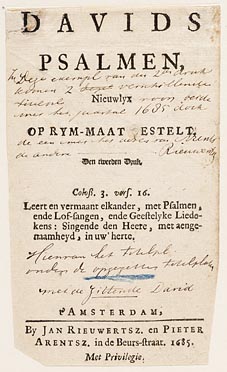 DAVIDS
PSALMEN,
In deze exempl. van den 2den druk
komen 2 verschillende
titels
Nieuwlyx voor, beide
met het jaartal 1685 doch
OP RYM-MAAT ESTELT,
de een met het adres van Arents
de andere Rieuwertsz
Den tweeden Druk,
Coloss. 3. vers. 16.
Leert en vermaant elkander, met Psalmen,
ende Lof-sangen, ende Geestelyke Liede-
kens: Singende den Heere, met aenge-
naamheyd, in uw' herte.
Hiervan het titelpl.
onder de opgezette titelplaten
met de zittende David
t'AMSTERDAM,
By JAN RIEUWERTSZ. en PIETER
ARENTSZ. in de Beurs-straat. 1685.
Met Privilegie.